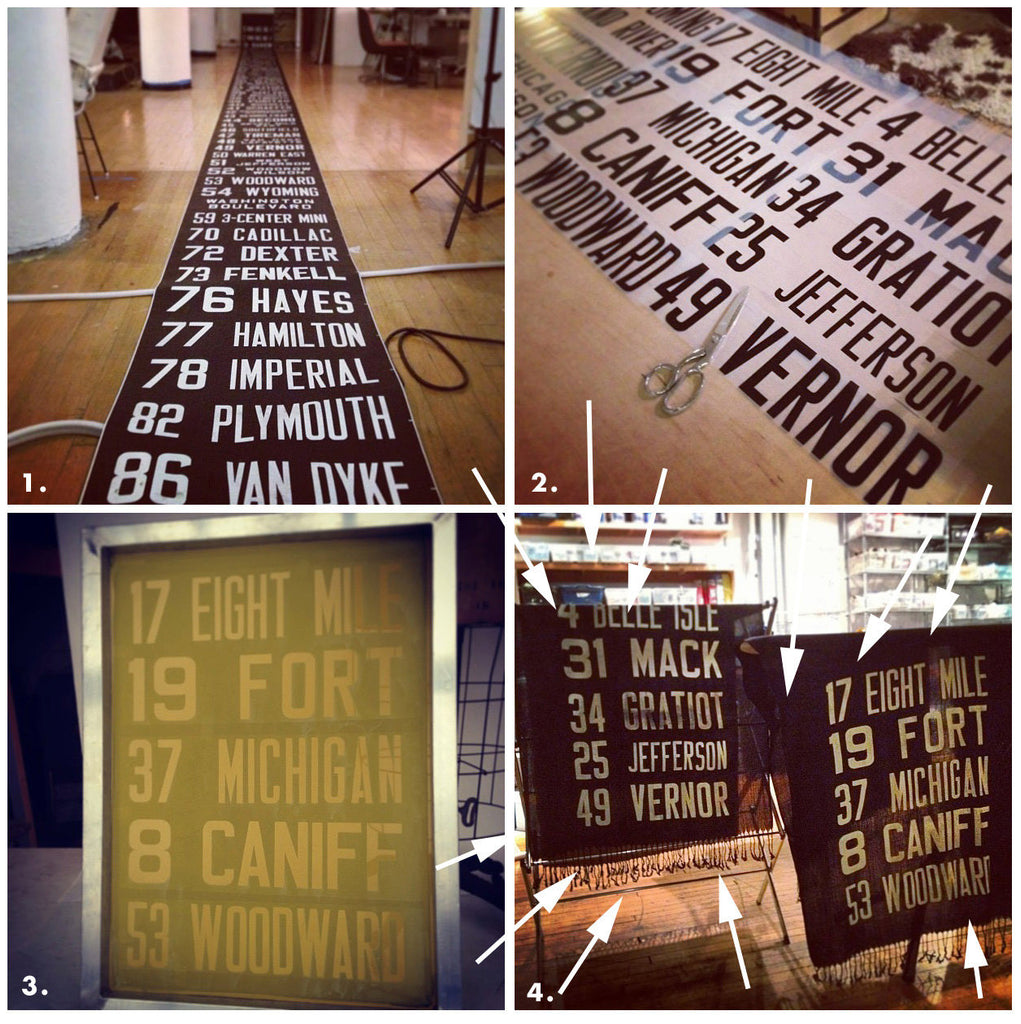 44 SECOND
46 SOUTHFIELD
47 TIREMAN
49 VERNOR
50 WARREN EAST
51 JEFFERSON
52 WOODROW WILSON
53 WOODWARD
54 WYOMING
WASHINGTON
BOULEVARD
59 3-CENTER MINI
70 CADILLAC
72 DEXTER
73 FENKELL
76 HAYES
77 HAMILTON
78 IMPERIAL
82 PLYMOUTH
86 VAN DYKE
1.
17 EIGHT MILE 4 BELLE
RIVER 19 FORT 31 MAC
37 MICHIGAN 34 GRATIOT
8 CANIFF 25 JEFFERSON
WOODWARD 49 VERNOR
2.
17 EIGHT MILE
19 FORT
37 MICHIGAN
8 CANIFF
53 WOODWARD
3.
4 BELLE ISLE
31 MACK
34 GRATIOT
25 JEFFERSON
49 VERNOR
17 EIGHT MILE
19 FORT
37 MICHIGAN
8 CANIFF
53 WOODWARD
4.